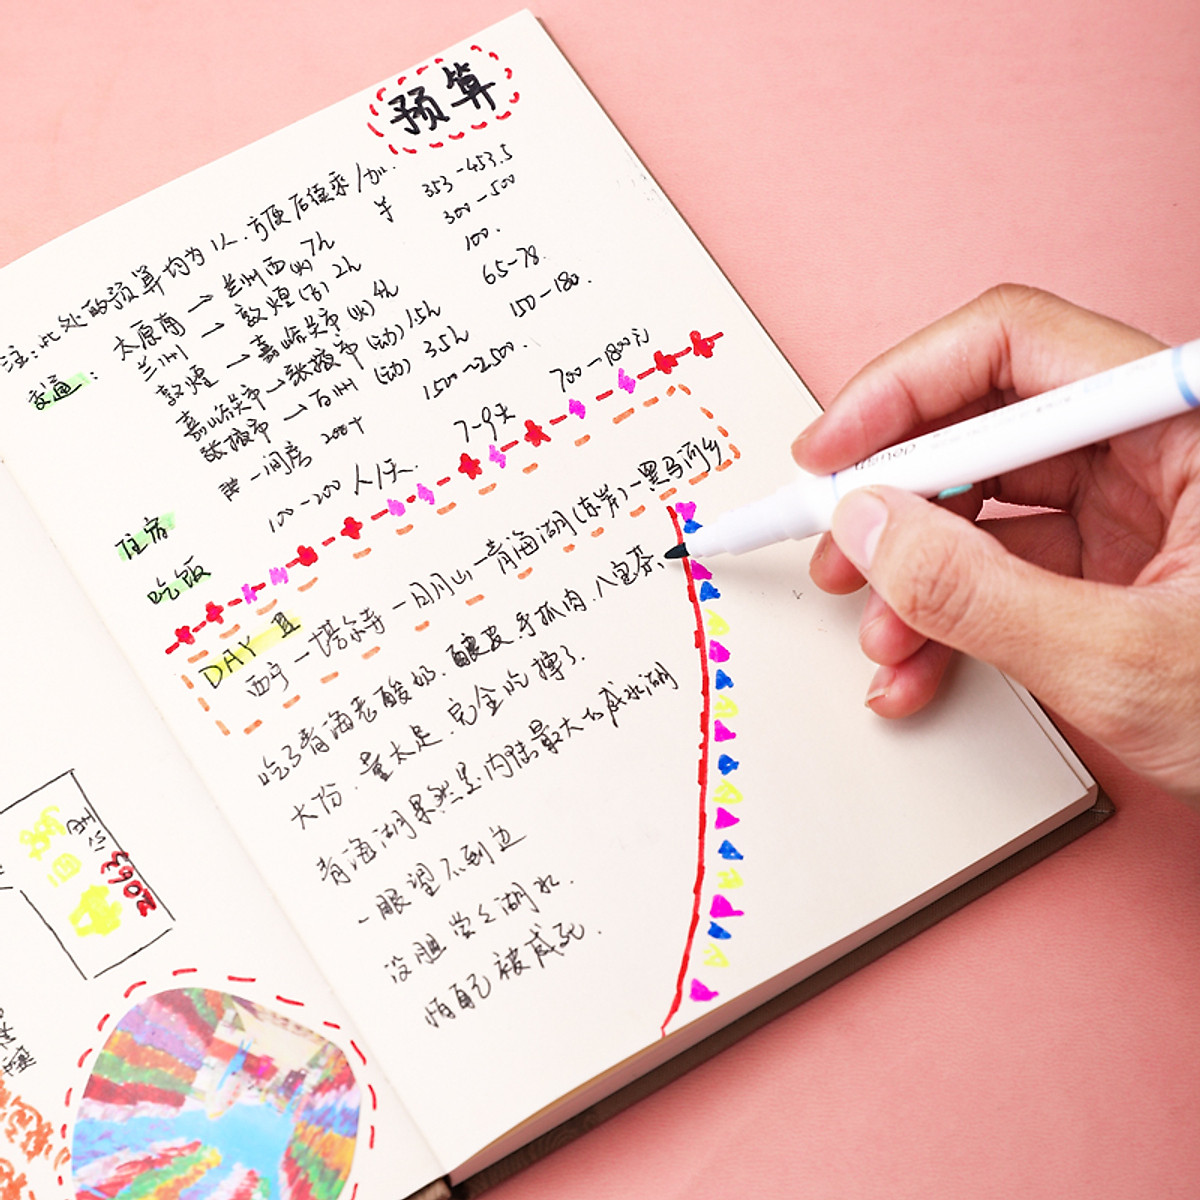 预算
注：此处的预算均为1人.方便后续乘/加.
交通： 太原南→兰州西(火)7h 353-453.5
兰州→敦煌 300-500
敦煌→嘉峪关市(火)4h 100.
嘉峪关市→张掖市(动)1.5h 65-78.
张掖市→西州(动)3.5h 150-180.
住宿 一间房 200+ 1500~2500.
吃饭 100-200 人/天. 7-9天 700-1800元
DAY Ⅲ
西宁—塔尔寺—日月山—青海湖(东岸)—黑马河乡
吃了青海老酸奶.酿皮.手抓肉.八宝茶、
大份.量太足.完全吃撑了.
青海湖果然是.内陆最大的咸水湖
一眼望不到边
没胆尝尝湖水.
怕自己被咸死.